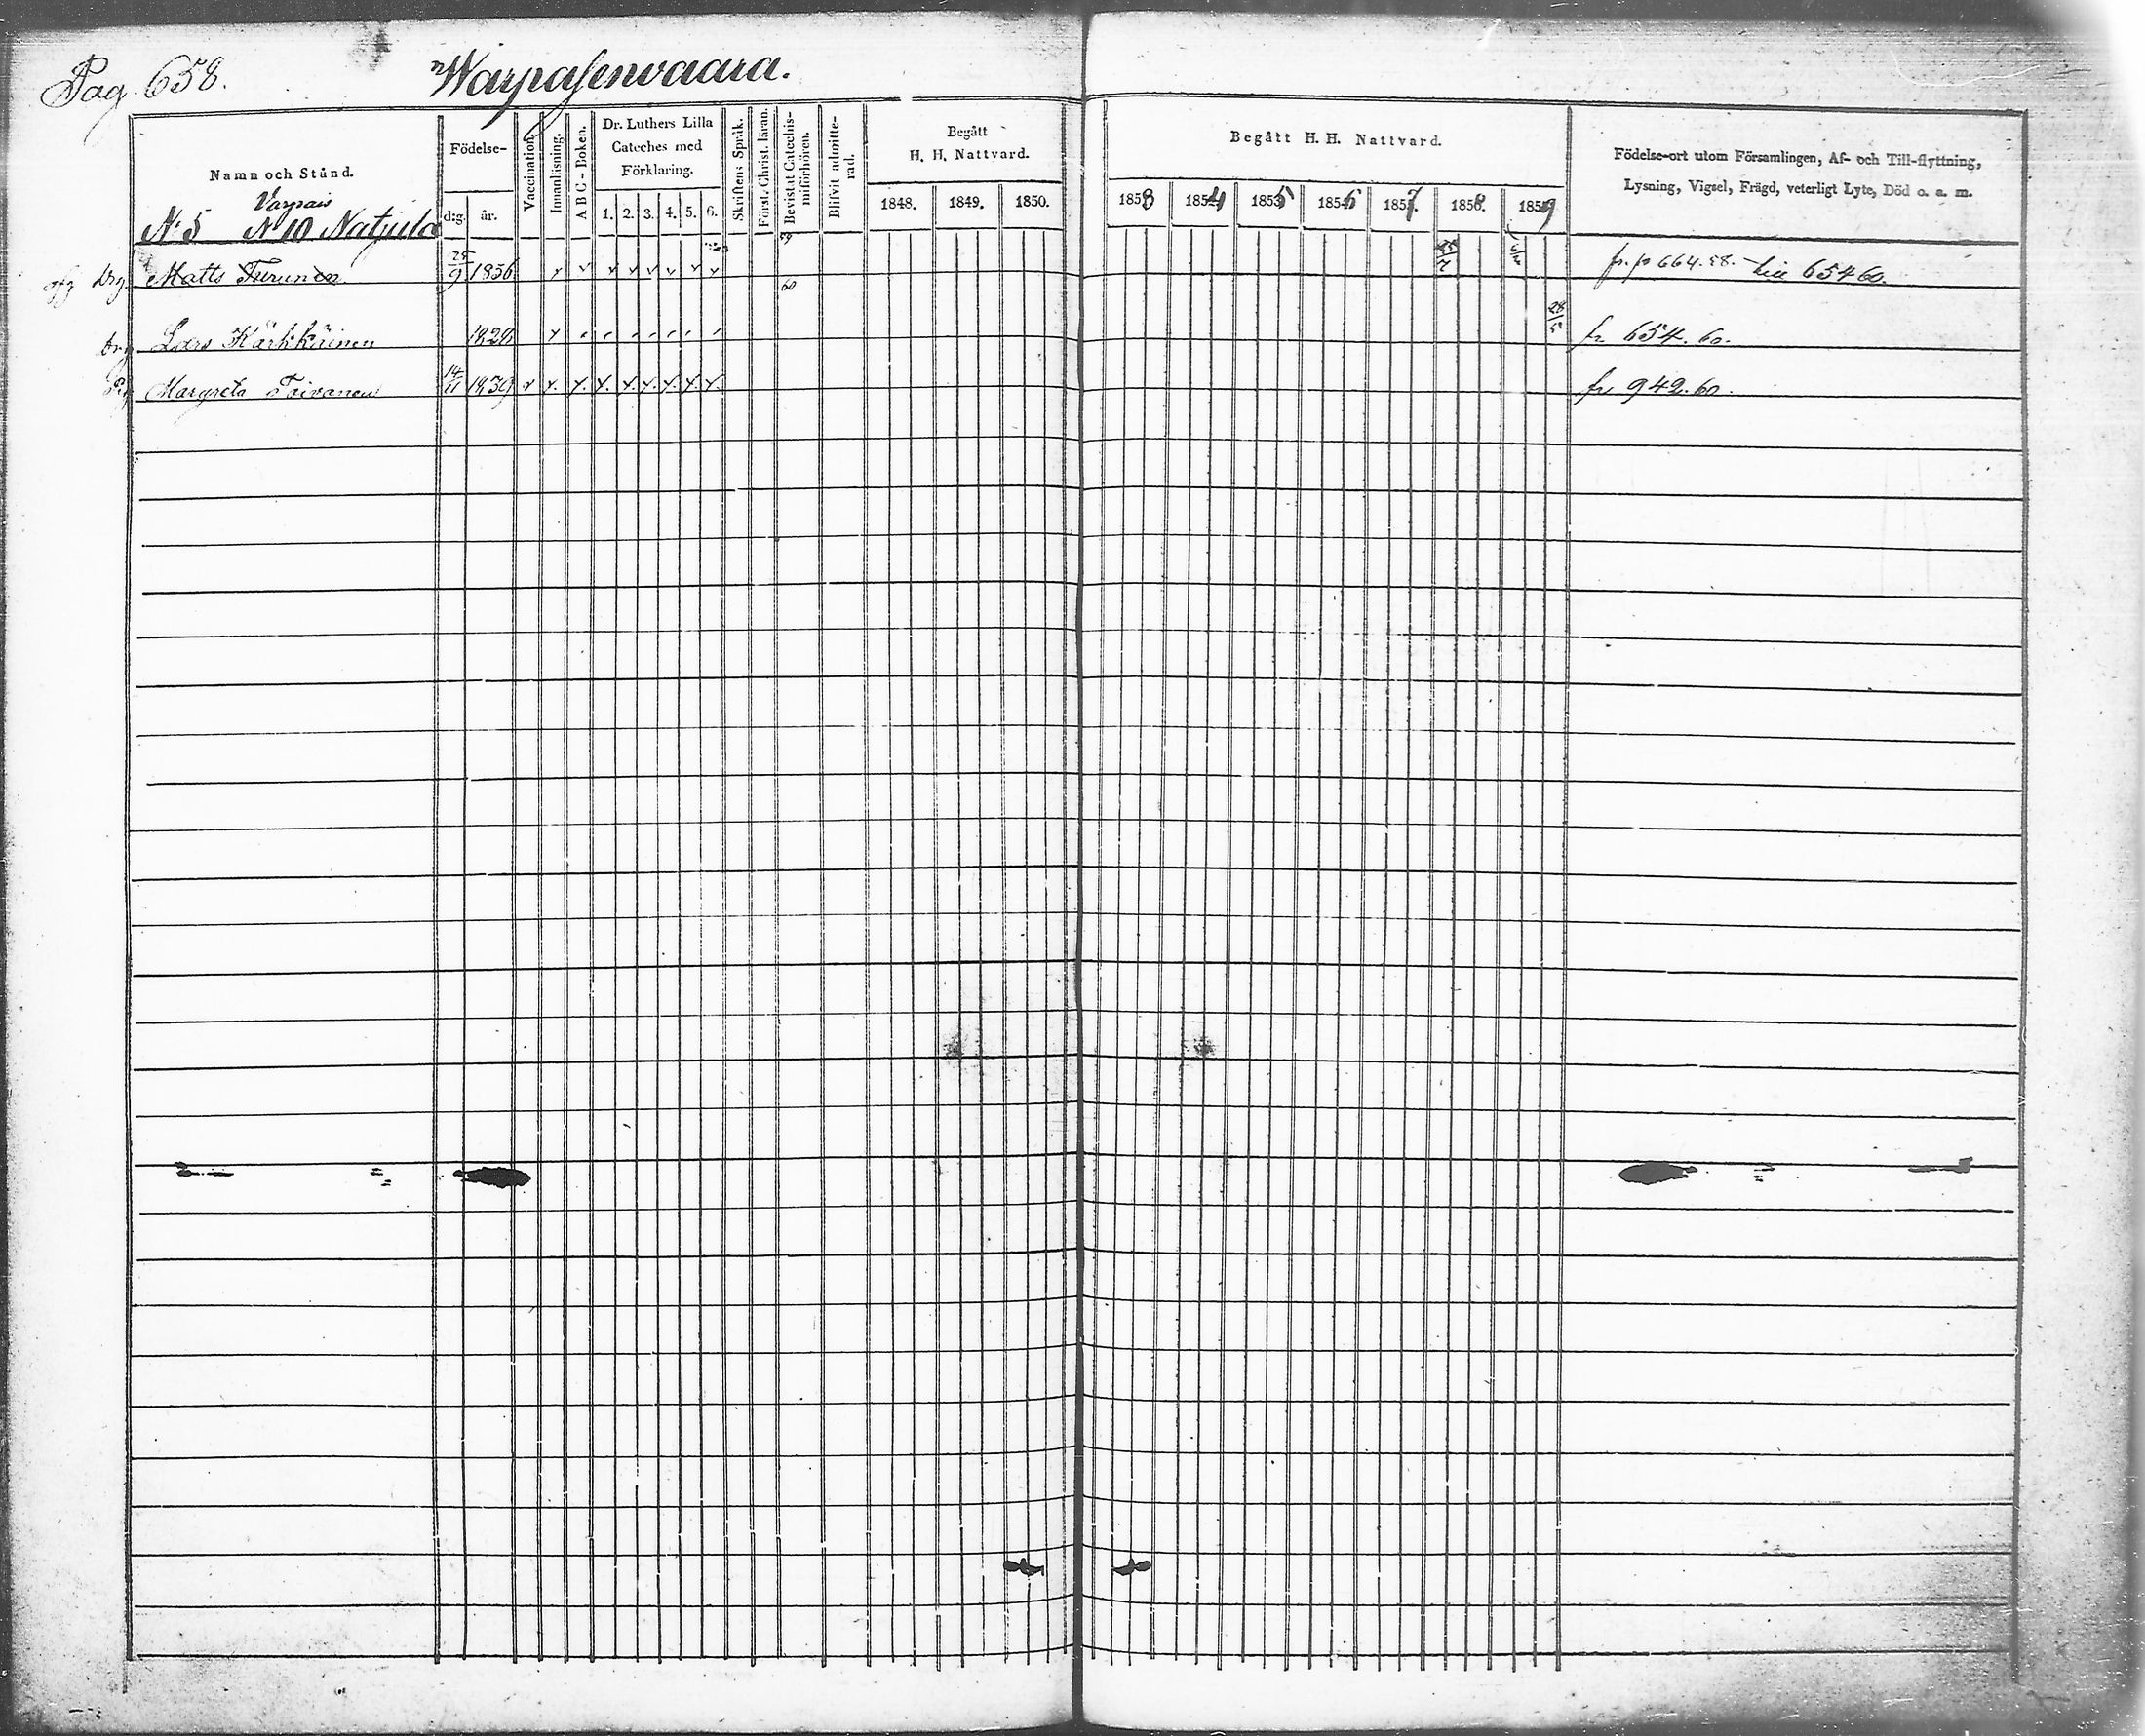 Pag. 658. Warpasenvaara.
Namn och Stånd.
Födelse-
d:g. år.
Vaccination.
Innanläsning.
A B C - Boken.
Dr. Luthers Lilla
Cateches med
Förklaring.
1. 2. 3. 4. 5. 6.
Skriftens Språk.
Först. Christ. läran.
Bevistat Catechis-
miförhören.
Blifvit admitte-
rad.
Begått
H. H. Nattvard.
1848. 1849. 1850.
Begått H. H. Nattvard.
1853 1854 1855 1856 1857 1858. 1859
Födelse-ort utom Församlingen, Af- och Till-flyttning,
Lysning, Vigsel, Frägd, veterligt Lyte, Död o. a. m.
Varpais
N:5 N:10
59
Drg. Matts Turunen 25/9 1836 v v v v v v v v 25/7 fr. p 664. 58. till 654 60.
60
Drg Lars Kärkkäinen 1828 28/5 fr. 654. 60.
Pig Margreta Toivanen 14/11 1839 x x. x. x. x. x. x. x. x. fr 942. 60.